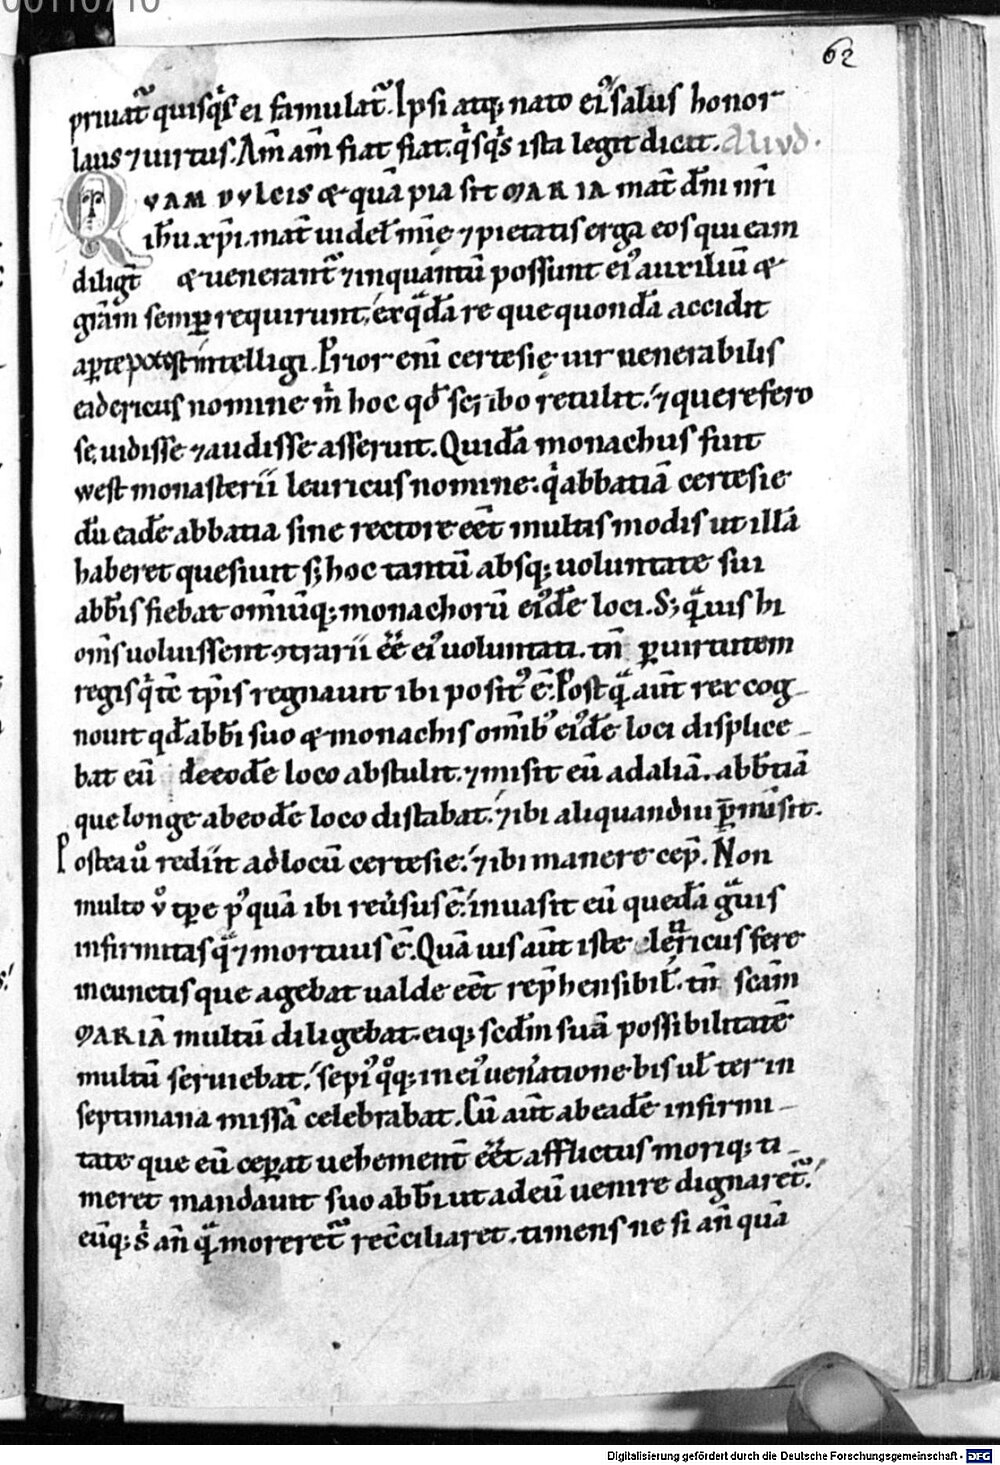 00110710
62
priuat᷑ quisq᷑s ei famulat᷑. Ipsi atq; nato eiꝰ salus honor
laus ⁊ uirtus. Am̄ am̄ fiat fiat. qͥsqͥs ista legit dicit. Aliud.
QVAM DVLCIS & quā pia sit MARIA mat̄ dn̄i nr̄i
ih̄u xp̄i. mat̄ uidel̄ mīę ⁊ pietatis erga eos qui eam
diligt̄ & uenerant᷑ ⁊ inquantū possunt eiꝰ auxiliū &
grām semꝑ requirunt, ex qᵃdā re que quondā accidit
aꝑte potest intelligi. Prior eni certesię uir uenerabilis
eadericus nomine m̄ hoc qd̄ scribo retulit. ⁊ que refero
se uidisse ⁊ audisse asseruit. Quidā monachus fuit
west monasterii leuricus nomine. qͥ abbatiā certesie
dū eadē abbatia sine rectore eēt multis modis ut illā
haberet quesiuit s; hoc tantū absq; uoluntate sui
abb̄is fiebat omīuq; monachorū eiꝰdē loci. S; qᵃuis hi
om̄s uoluissent ꝯtrarii eē eiꝰ uoluntati. tn̄ ꝑ uirtutem
regis qͥ tc̄ tp̄is regnauit ibi positꝰ ē. Post qᵃ aūt rex cog-
nouit qd̄ abb̄i suo & monachis omībꝰ eiꝰdē loci displice-
bat eū de eodē loco abstulit. ⁊ misit eū ad aliā. abb̄tiā
que longe ab eodē loco distabat. ⁊ ibi aliquandiu ꝑmisit.
Postea u͛ rediit ad locū certesie. ⁊ ibi manere cep̄. Non
multo u͛ tꝑe pꝰquā ibi reuͥsus ē. inuasit eū quedā gᵃuis
infirmitas qᵃ ⁊ mortuus ē. Quā uis aūt iste leuricus fere
in cunctis que agebat ualde eēt rep̄hensibil̄. tn̄ scām
MARIĀ multū diligebat. eiq; scdm̄ suā possibilitatē
multū seruiebat. sepiꝰ qͦq; in eiꝰ uen̄atione bis ul̄ ter in
septimana missā celebrabat. Cū aūt ab eadē infirmi-
tate que eū ceꝑat uehement̄ eēt afflictus moriq; ti-
meret mandauit suo abb̄i ut ad eū uenire dignaret᷑.
eūq; s͛ an̄ qᵃ moreret᷑ rec̄ciliaret. timens ne si an̄ quā
Digitalisierung gefördert durch die Deutsche Forschungsgemeinschaft - DFG